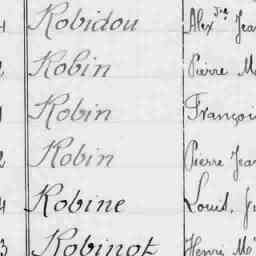 4 Robidou Alex Jea
2 Robin Pierre M
1 Robin Françoi
2 Robin Pierre Jea
4 Robine Louis. J
3 Robinot Henri M